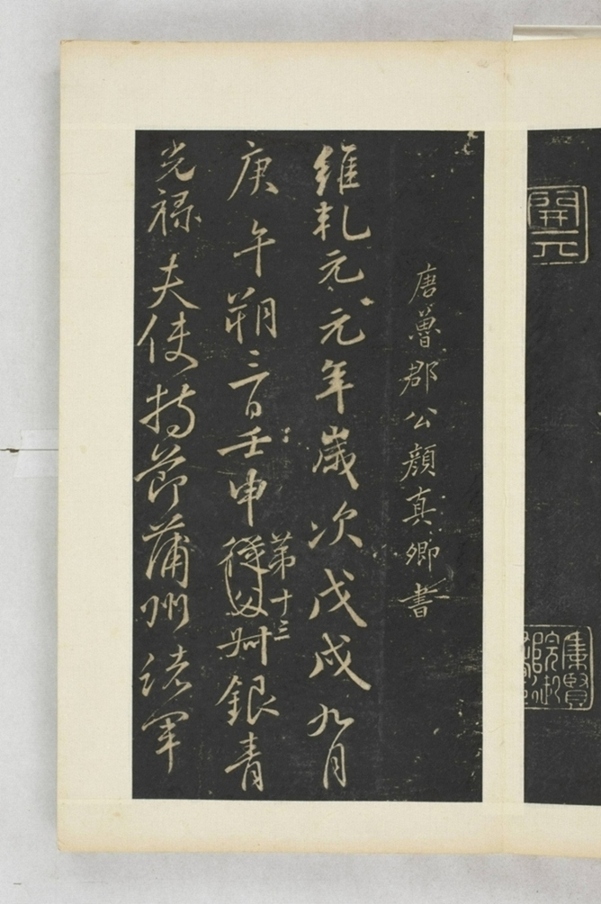 開元
集賢院御
唐魯郡公顏真卿書
維乹元元年歲次戊戌九月
庚午朔三日壬申從父叔銀青
第十三
光祿夫使持節蒲州諸軍